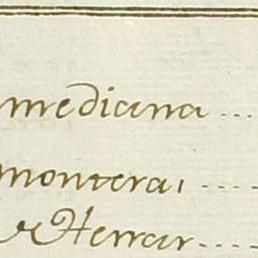 mediana ...
montera, ....
Herrar....